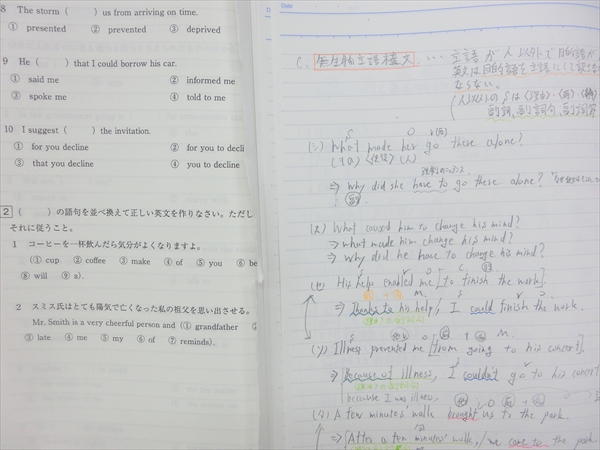 8 The storm ( ) us from arriving on time.
① presented ② prevented ③ deprived
9 He ( ) that I could borrow his car.
① said me ② informed me
③ spoke me ④ told to me
10 I suggest ( ) the invitation.
① for you decline ② for you to decli
③ that you decline ④ you to decline
2 ( )の語句を並べ換えて正しい英文を作りなさい。ただし
それに従うこと。
1 コーヒーを一杯飲んだら気分がよくなりますよ。
(① cup ② coffee ③ make ④ of ⑤ you ⑥ be
⑧ will ⑨ a).
2 スミス氏はとても陽気で亡くなった私の祖父を思い出させる。
Mr. Smith is a very cheerful person and (① grandfather
③ late ④ me ⑤ my ⑥ of ⑦ reminds).
Date
C. 無生物主語構文 … 主語が人以外で目的語が
ならない。
(シ) What made her go there alone?
⇒ Why did she have to go there alone?
(ス) What caused him to change his mind?
⇒ What made him change his mind?
⇒ Why did he have to change his mind?
(セ) His help enabled me [to finish the work].
⇒ his help, I could finish the work.
(ソ) Illness prevented me [from going to his concert].
⇒ Because of illness, I couldn't go to his concert
because I was illness.
(タ) A few minutes' walk brought us to the park.
⇒ After a few minutes' walk, we came to the park.